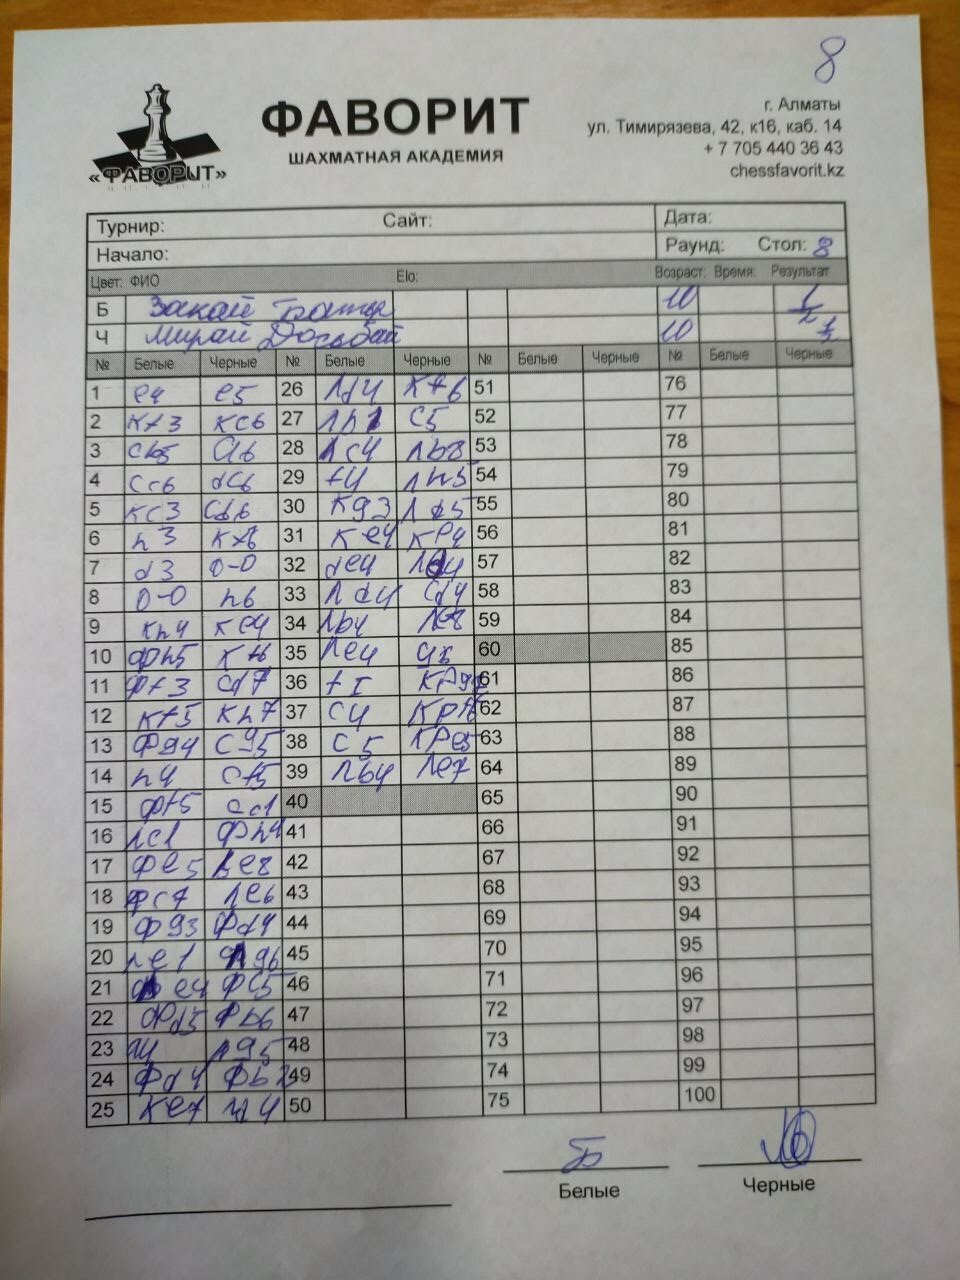 8
ФАВОРИТ
ШАХМАТНАЯ АКАДЕМИЯ
«ФАВОРИТ»
г. Алматы
ул. Тимирязева, 42, к16, каб. 14
+ 7 705 440 36 43
chessfavorit.kz
Турнир: Сайт: Дата:
Начало: Раунд: Стол: 8
Цвет: ФИО Elo: Возраст: Время: Результат
Б Закай Батыр 10 1/2
Ч Мирай Досыбай 10 1/2
№ Белые Черные № Белые Черные № Белые Черные № Белые Черные
1 e4 e5 26 Лd4 Кf6 51 76
2 Кf3 Кc6 27 Лh1 c5 52 77
3 Cb5 a6 28 Лc4 Лb8 53 78
4 Cc6 dc6 29 f4 Лh5 54 79
5 Кc3 Cd6 30 Кg3 Лd5 55 80
6 h3 Кf6 31 Кe4 Кe4 56 81
7 d3 0-0 32 de4 Лd4 57 82
8 0-0 h6 33 Лd4 cd4 58 83
9 Кh4 Кe4 34 Лb4 Лe8 59 84
10 Фh5 Кf6 35 Лe4 60 85
11 Фf3 Cd7 36 61 86
12 Кf5 Кh7 37 c4 62 87
13 Фg4 Cg5 38 c5 63 88
14 h4 Cf5 39 Лb4 Лe7 64 89
15 Фf5 Cc1 40 65 90
16 Лc1 Фh4 41 66 91
17 Фe5 Лe8 42 67 92
18 Фc7 Лe6 43 68 93
19 Фg3 Фd4 44 69 94
20 Лe1 Лg6 45 70 95
21 e4 Фc5 46 71 96
22 Фd5 Фb6 47 72 97
23 Лg5 48 73 98
24 Фd4 49 74 99
25 Кe7 50 75 100
Б
Белые Черные